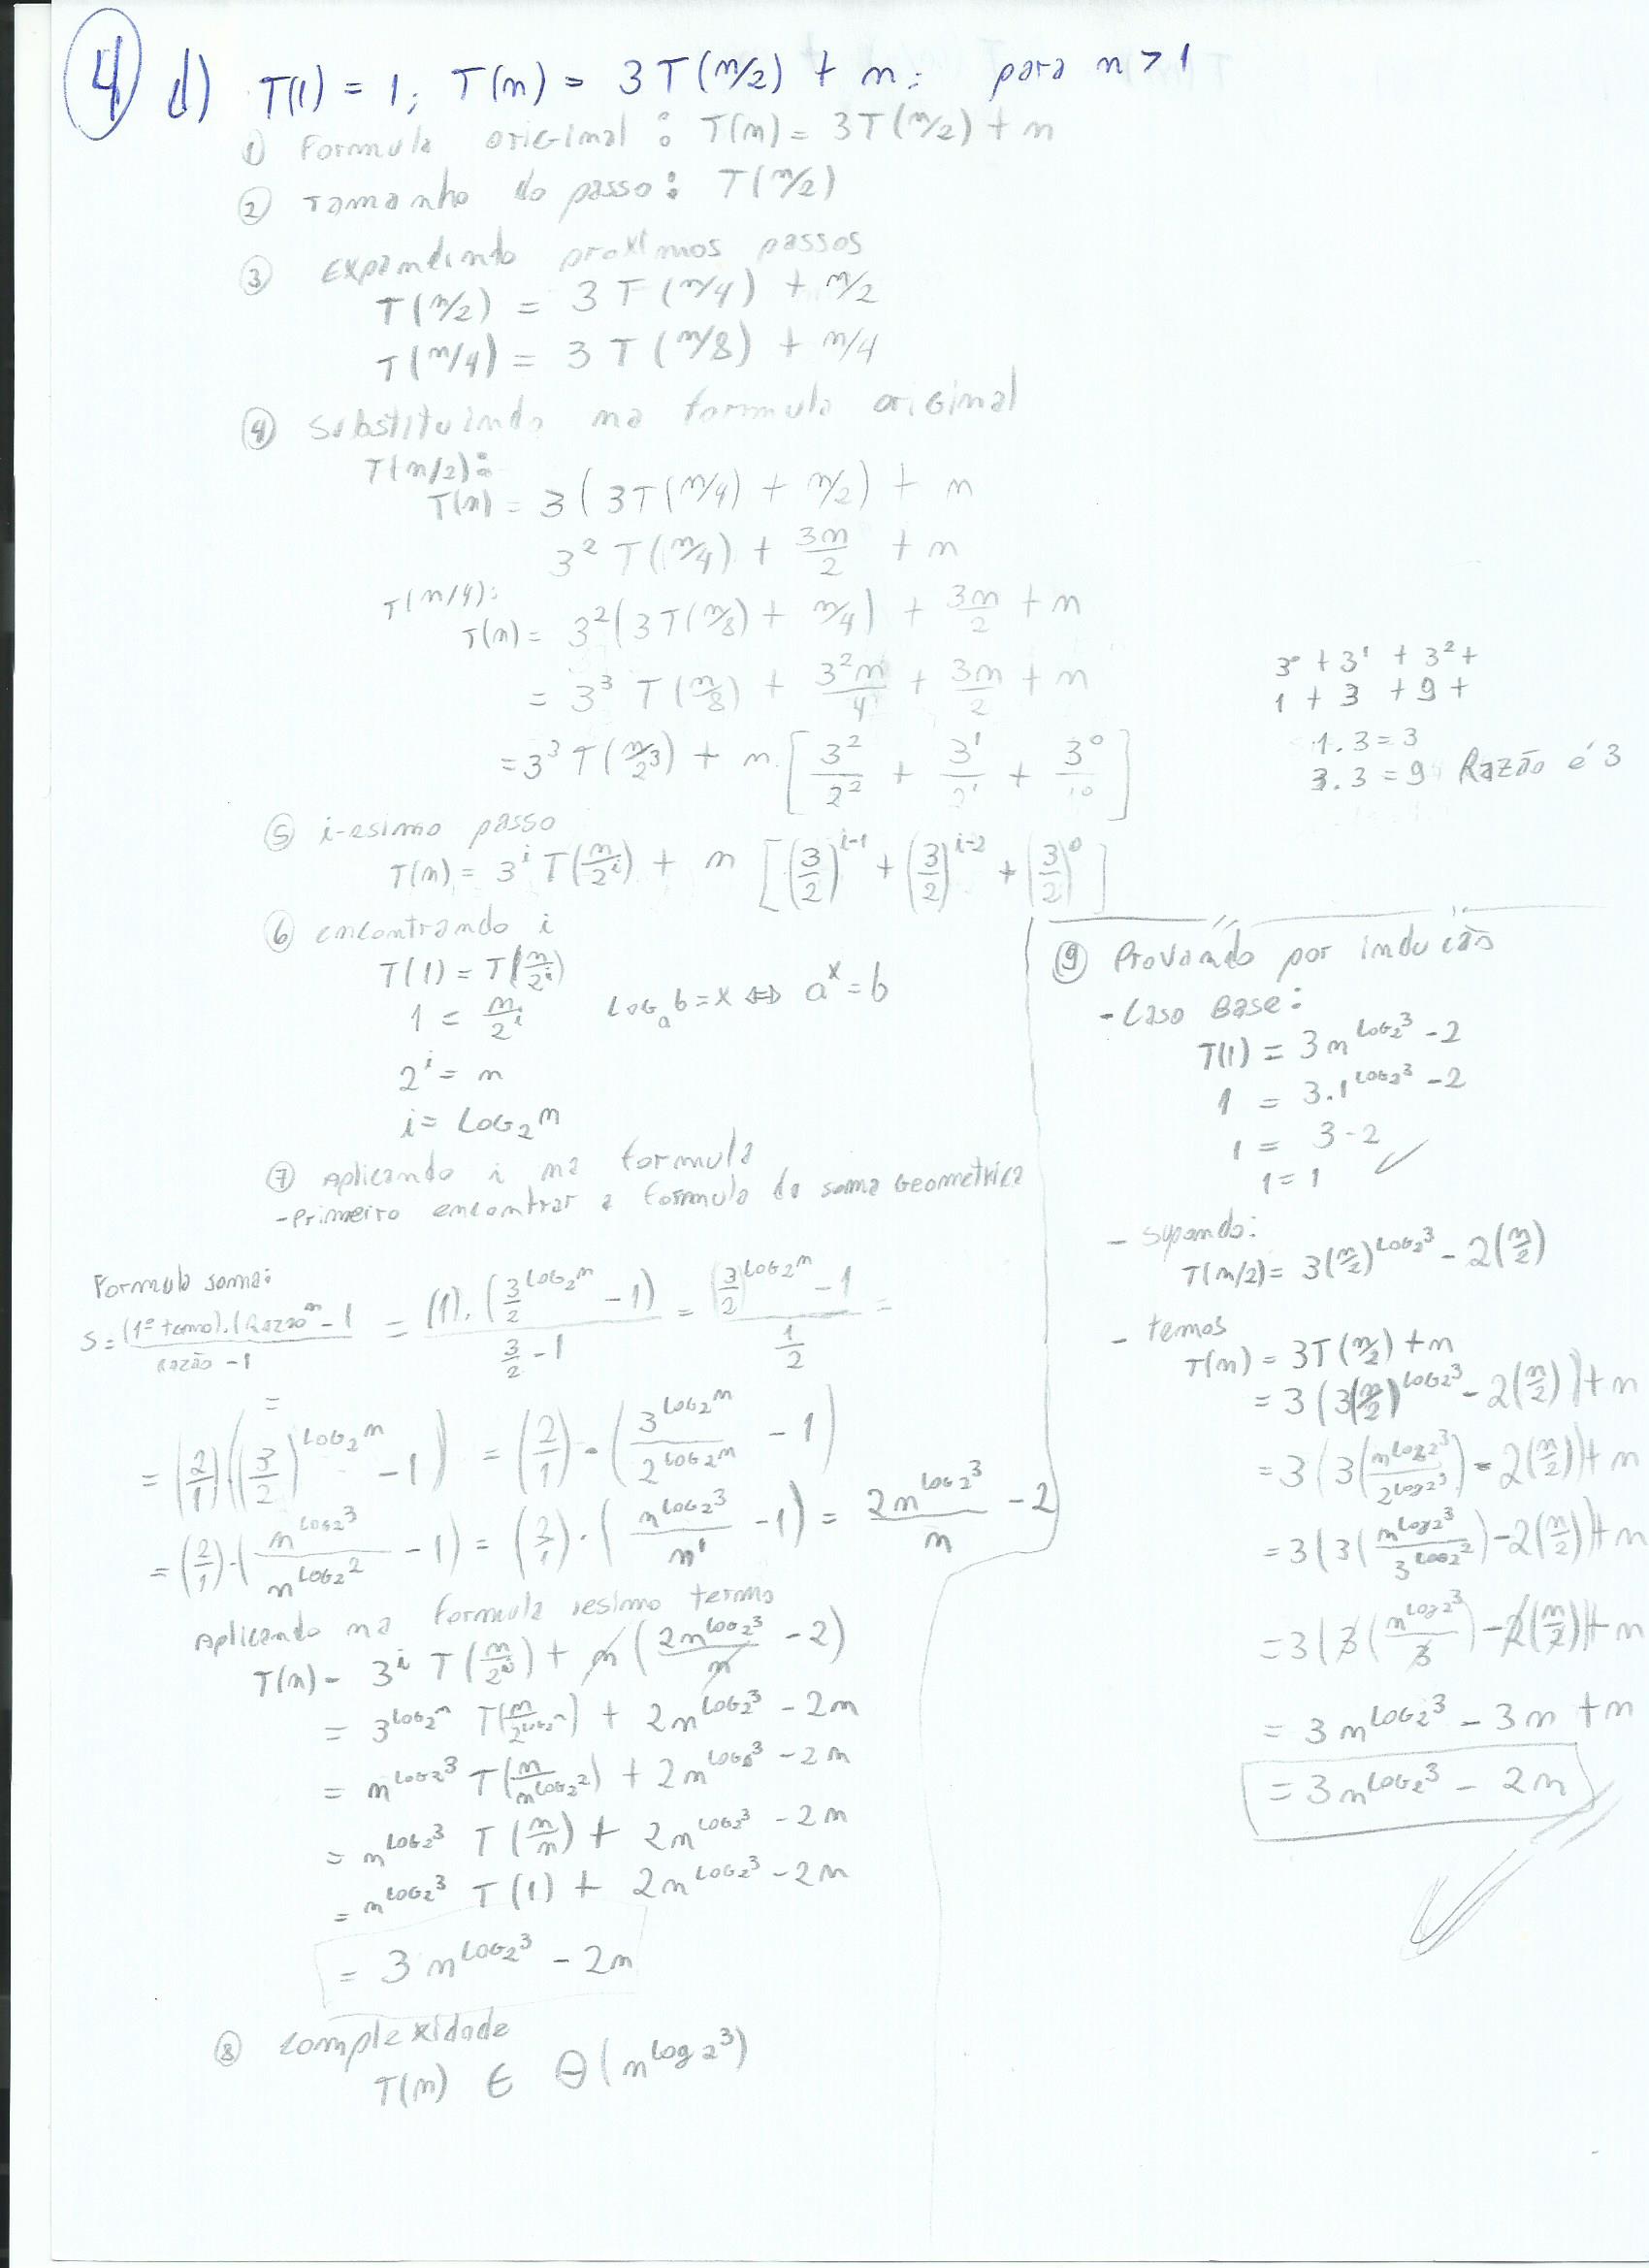 4 d) T(1) = 1; T(n) = 3T(n/2) + n; para n > 1
① Formula original : T(n) = 3T(n/2) + n
② Tamanho do passo : T(n/2)
③ Expandindo proximos passos
T(n/2) = 3T(n/4) + n/2
T(n/4) = 3T(n/8) + n/4
④ Substituindo na formula original
T(n/2):
T(n) = 3(3T(n/4) + n/2) + n
3² T(n/4) + 3n/2 + n
T(n/4):
T(n) = 3²(3T(n/8) + n/4) + 3n/2 + n
= 3³ T(n/8) + 3²n/4 + 3n/2 + n
= 3³ T(n/2³) + n. [3²/2² + 3¹/2¹ + 3⁰/1⁰]
3⁰ + 3¹ + 3² +
1 + 3 + 9 +
1.3 = 3
3.3 = 9 Razão é 3
⑤ i-esimo passo
T(n) = 3^i T(n/2^i) + n [(3/2)^(i-1) + (3/2)^(i-2) + (3/2)^0]
⑥ encontrando i
T(1) = T(n/2^i)
1 = n/2^i log_a b = x ⇔ a^x = b
2^i = n
i = log₂n
⑦ Aplicando i na formula
- Primeiro encontrar a formula da soma Geometrica
Formula soma:
S = (1º termo).(Razão^n - 1 / Razão - 1 = (1).(3/2^(log₂n) - 1) / (3/2 - 1) = ((3/2)^(log₂n) - 1) / (1/2) =
=
= (2/1).((3/2)^(log₂n) - 1) = (2/1).(3^(log₂n)/2^(log₂n) - 1)
= (2/1).(n^(log₂3)/n^(log₂2) - 1) = (2/1).(n^(log₂3)/n¹ - 1) = 2n^(log₂3)/n - 2
Aplicando na formula iesimo termo
T(n) = 3^i T(n/2^i) + n(2n^(log₂3)/n - 2)
= 3^(log₂n) T(n/2^(log₂n)) + 2n^(log₂3) - 2n
= n^(log₂3) T(n/n^(log₂2)) + 2n^(log₂3) - 2n
= n^(log₂3) T(n/n) + 2n^(log₂3) - 2n
= n^(log₂3) T(1) + 2n^(log₂3) - 2n
= 3n^(log₂3) - 2n
⑧ Complexidade
T(n) ∈ Θ(n^(log₂3))
⑨ Provando por indução
- Caso Base:
T(1) = 3n^(log₂3) - 2
1 = 3.1^(log₂3) - 2
1 = 3 - 2
1 = 1 ✓
- supondo:
T(n/2) = 3(n/2)^(log₂3) - 2(n/2)
- temos
T(n) = 3T(n/2) + n
= 3(3(n/2)^(log₂3) - 2(n/2)) + n
= 3(3(n^(log₂3)/2^(log₂3)) - 2(n/2)) + n
= 3(3(n^(log₂3)/3^(log₂2)) - 2(n/2)) + n
= 3(3(n^(log₂3)/3) - 2(n/2)) + n
= 3n^(log₂3) - 3n + n
= 3n^(log₂3) - 2n